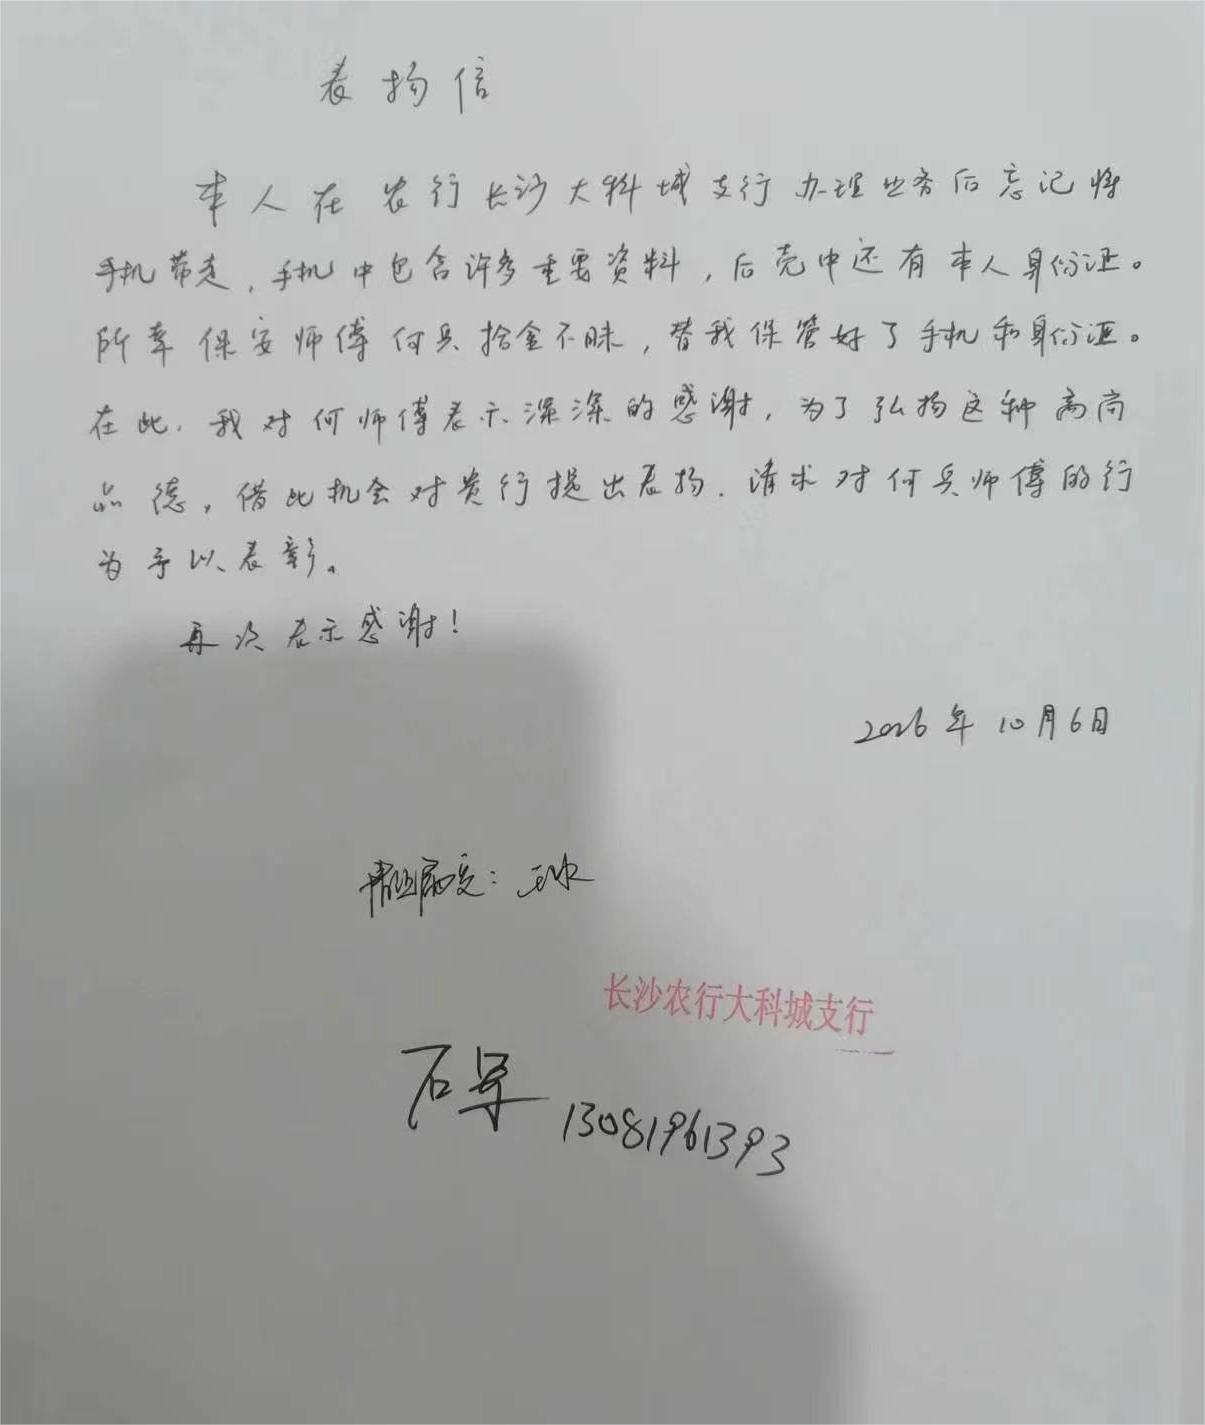 表扬信
本人在农行长沙大科城支行办理业务后忘记将
手机带走,手机中包含许多重要资料,后壳中还有本人身份证。
所幸保安师傅何兵拾金不昧,替我保管好了手机和身份证。
在此,我对何师傅表示深深的感谢,为了弘扬这种高尚
品德,借此机会对贵行提出表扬.请求对何兵师傅的行
为予以表彰。
再次表示感谢!
2026年10月6日
长沙农行大科城支行
石军 13081961393